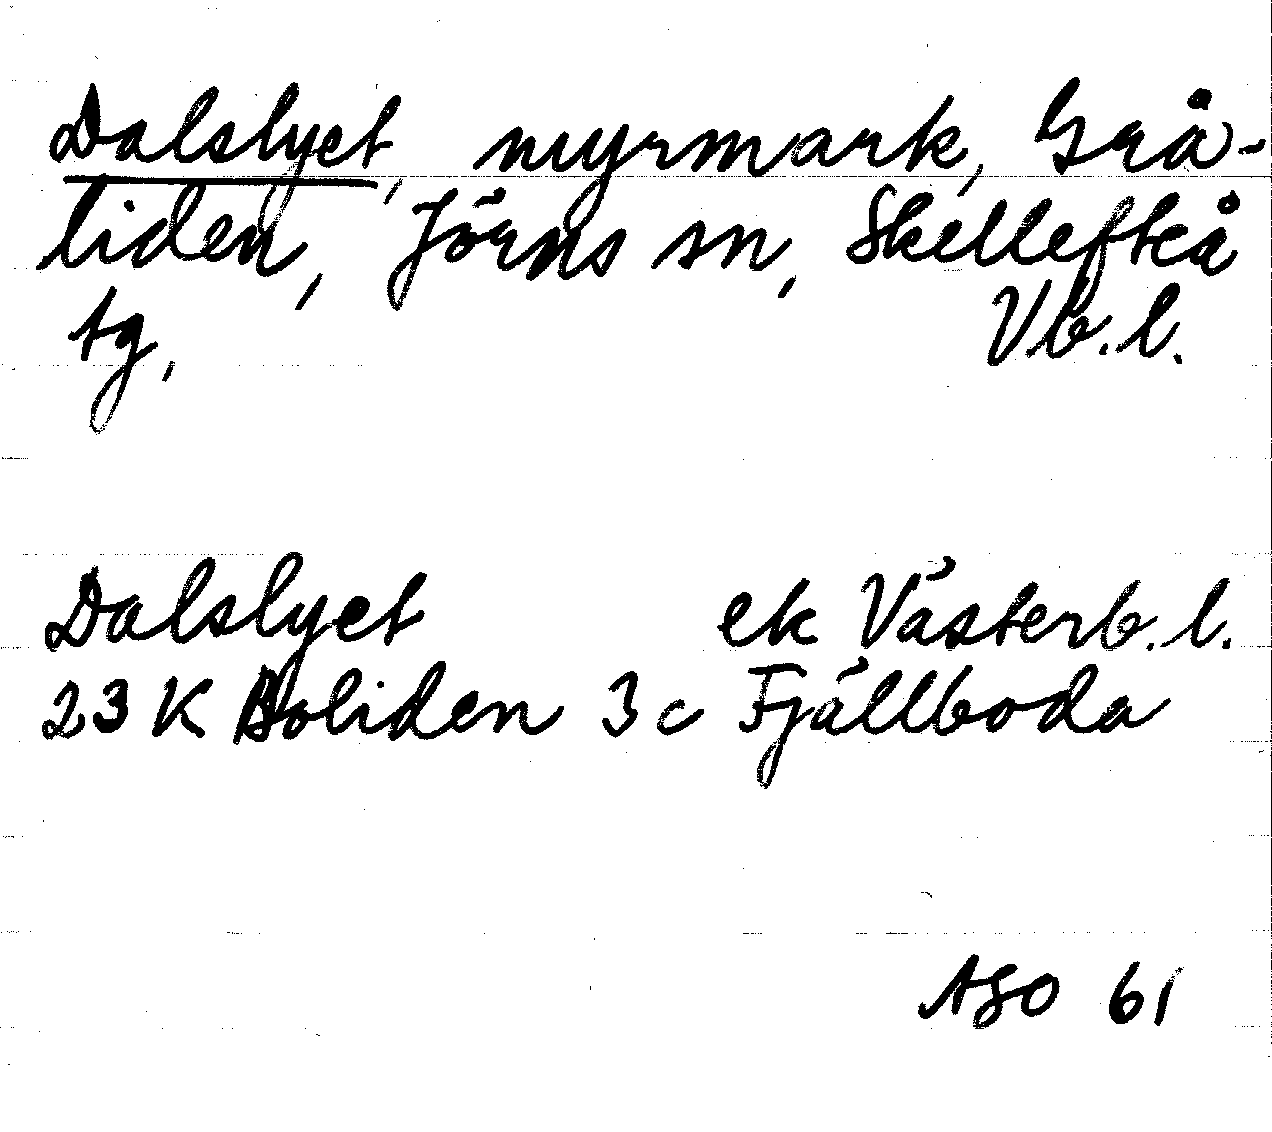 Dalslyet, myrmark, Grå-
liden, Jörns sn, Skellefteå
tg, Vb. l.
Dalslyet ek Västerb. l.
23 K Boliden 3 c Fjällboda
AGO 61